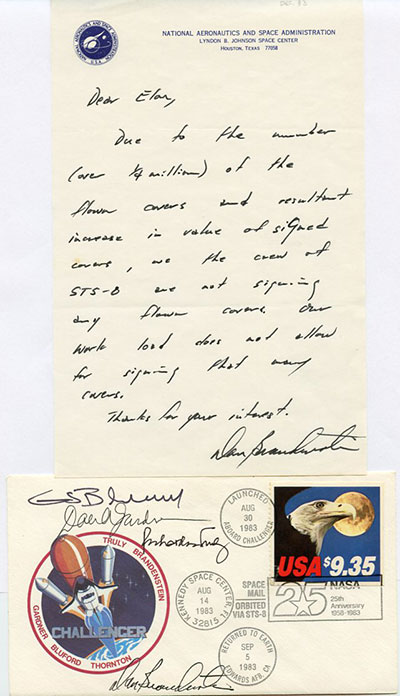 Dec. 83
NATIONAL AERONAUTICS AND SPACE ADMINISTRATION
LYNDON B. JOHNSON SPACE CENTER
HOUSTON, TEXAS 77058
NATIONAL AERONAUTICS AND SPACE ADMINISTRATION
U.S.A.
Dear Elon,
Due to the number
(over 1/4 million) of the
flown covers and resultant
increase in value of signed
covers, we the crew of
STS-8 are not signing
any flown covers. Our
work load does not allow
for signing that many
covers.
Thanks for your interest.
Dan Brandenstein
TRULY BRANDENSTEIN
CHALLENGER
GARDNER BLUFORD THORNTON
Dan Brandenstein
LAUNCHED
AUG
30
1983
ABOARD CHALLENGER
KENNEDY SPACE CENTER, FL
AUG
14
1983
32815
SPACE
MAIL
ORBITED
VIA STS-8
RETURNED TO EARTH
SEP
5
1983
EDWARDS AFB, CA
USA $9.35
25 NASA
25th
Anniversary
1958-1983